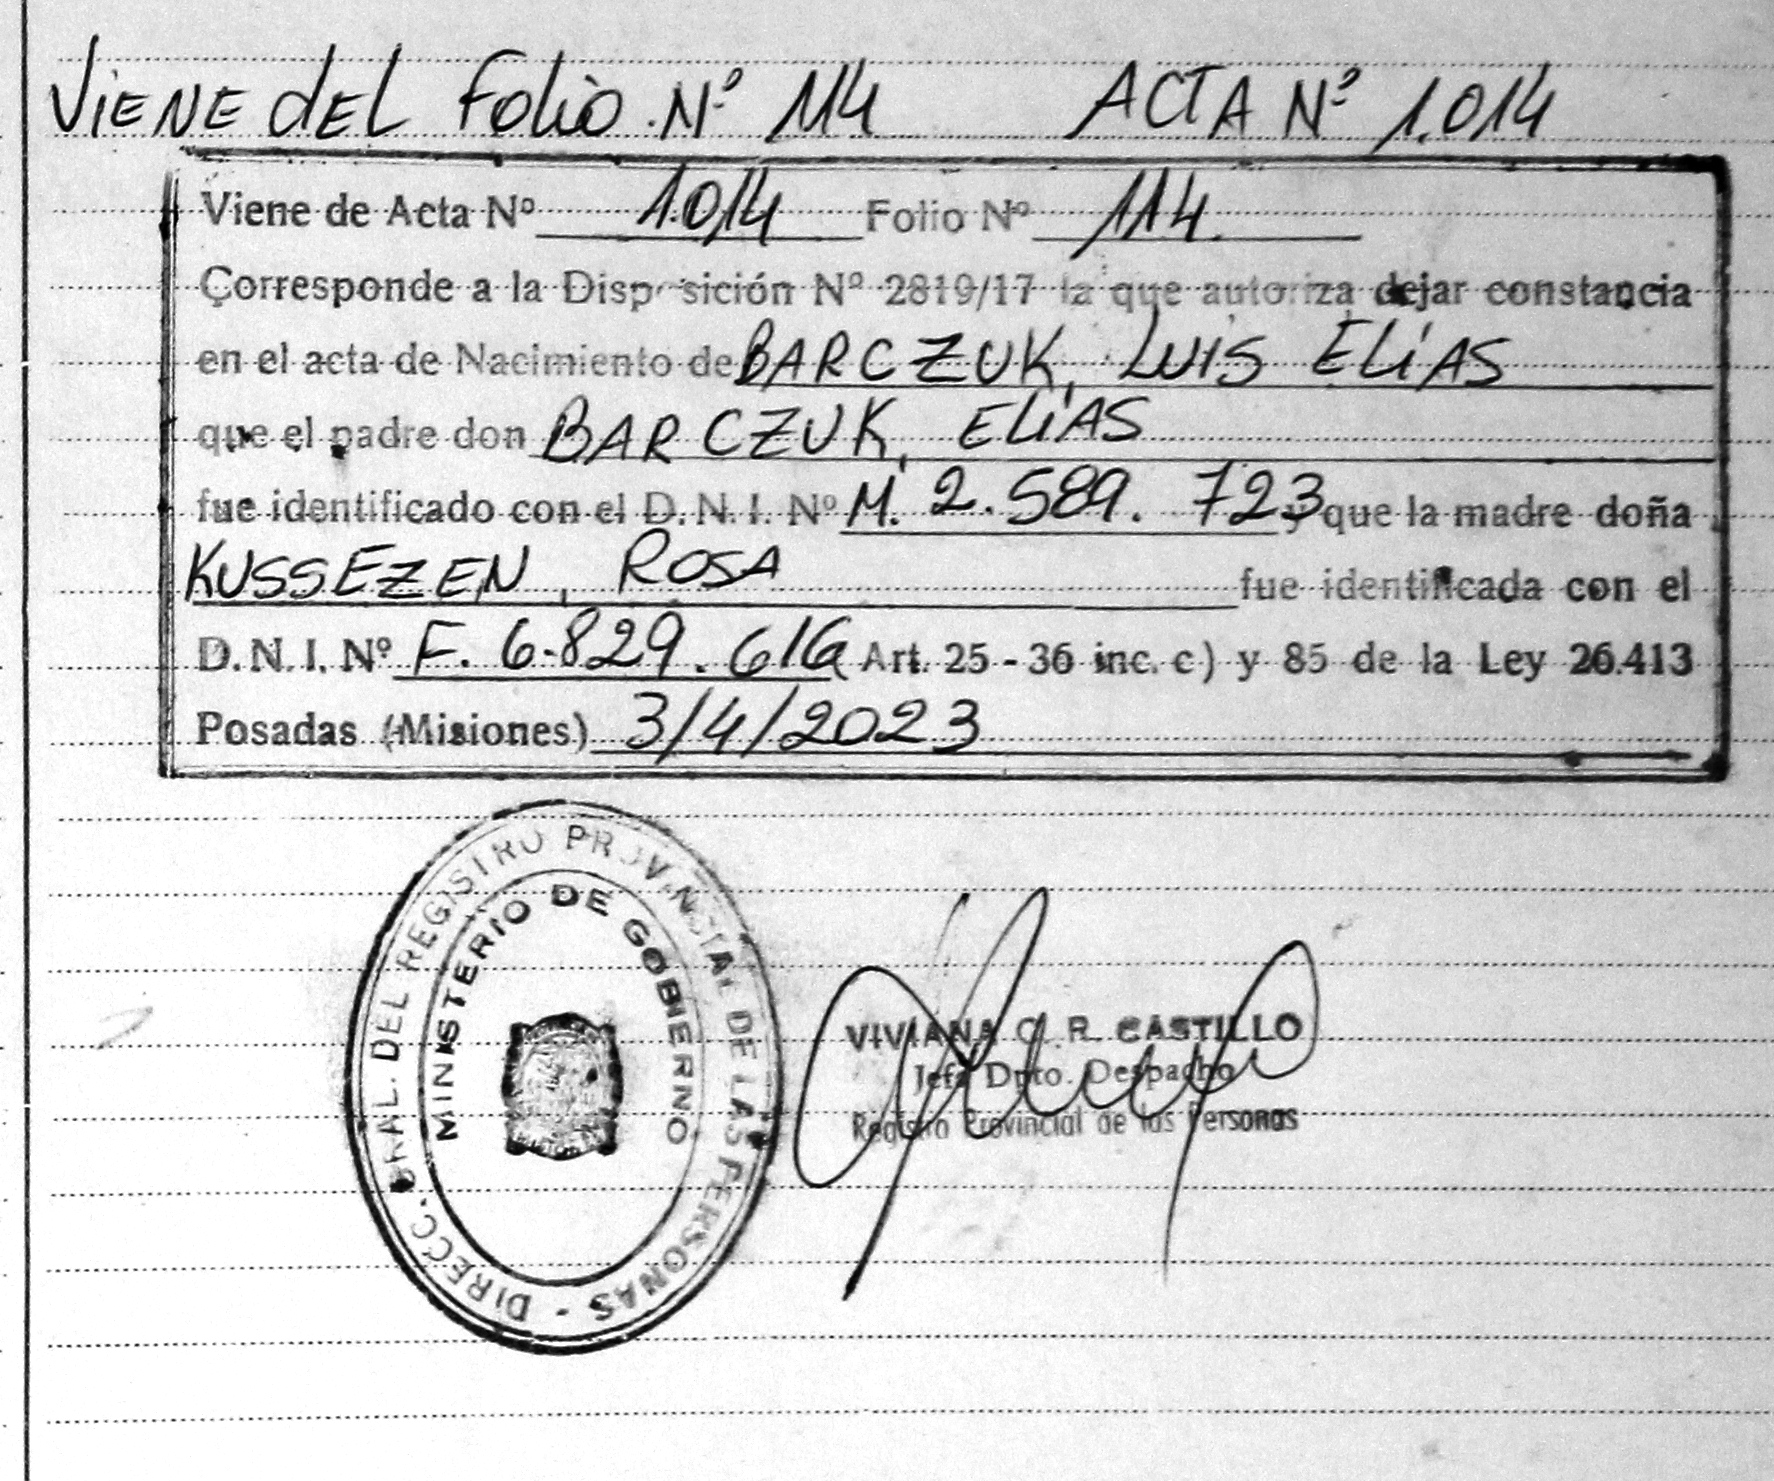 VIENE DEL FOLIO Nº 114 ACTA Nº 1.014
Viene de Acta Nº 1.014 Folio Nº 114.
Corresponde a la Disposición Nº 2819/17 la que autoriza dejar constancia
en el acta de Nacimiento de BARCZUK, LUIS ELíAS
que el padre don BARCZUK, ELíAS
fue identificado con el D.N.I. Nº M. 2.589.723 y que la madre doña
KUSSEZEN, ROSA fue identificada con el
D.N.I. Nº F. 6.829.616 Art. 25 - 36 inc. c) y 85 de la Ley 26.413
Posadas (Misiones) 3/4/2023
DIRECC. GRAL. DEL REGISTRO PROVINCIAL DE LAS PERSONAS -
MINISTERIO DE GOBIERNO
VIVIANA C. R. CASTILLO
Jefa Dpto. Despacho
Registro Provincial de las Personas